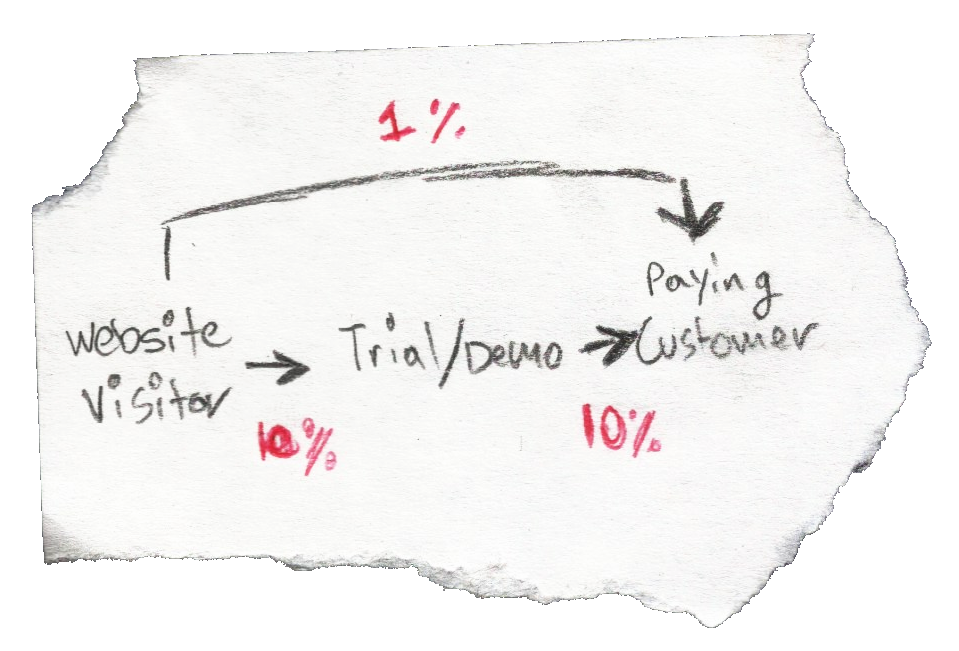 1%
Website
Visitor
Trial/Demo
Paying
Customer
10%
10%